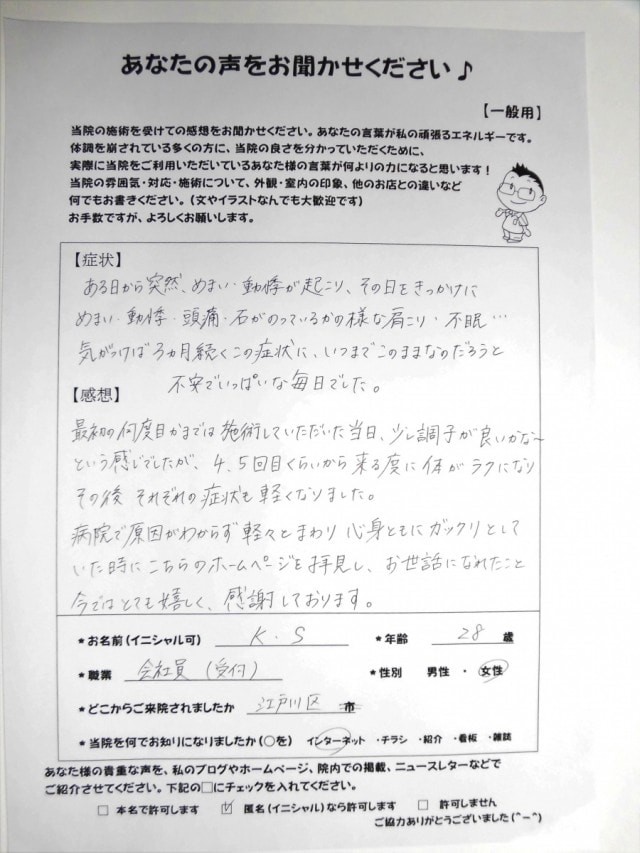 あなたの声をお聞かせください♪
【一般用】
当院の施術を受けての感想をお聞かせください。あなたの言葉が私の頑張るエネルギーです。
体調を崩されている多くの方に、当院の良さを分かっていただくために、
実際に当院をご利用いただいているあなた様の言葉が何よりの力になると思います！
当院の雰囲気・対応・施術について、外観・室内の印象、他のお店との違いなど
何でもお書きください。（文やイラストなんでも大歓迎です）
お手数ですが、よろしくお願いします。
【症状】
ある日から突然、めまい・動悸が起こり、その日をきっかけに
めまい・動悸・頭痛・石がのっているかの様な肩こり・不眠…
気がつけば3ヵ月続くこの症状に、いつまでこのままなのだろうと
不安でいっぱいな毎日でした。
【感想】
最初の何度目かまでは施術していただいた当日、少し調子が良いかな〜
という感じでしたが、4、5回目くらいから来る度に体がラクになり
その後それぞれの症状も軽くなりました。
病院で原因がわからず軽々とまわり心身ともにガックリとして
いた時にこちらのホームページを拝見し、お世話になれたこと
今ではとても嬉しく、感謝しております。
＊お名前（イニシャル可） K.S ＊年齢 28 歳
＊職業 会社員（受付） ＊性別 男性 ・ 女性
＊どこからご来院されましたか 江戸川区 市
＊当院を何でお知りになりましたか（○を） インターネット ・チラシ ・紹介 ・看板 ・雑誌
あなた様の貴重な声を、私のブログやホームページ、院内での掲載、ニュースレターなどで
ご紹介させてください。下記の□にチェックを入れてください。
□ 本名で許可します ☑ 匿名（イニシャル）なら許可します □ 許可しません
ご協力ありがとうございました(^-^)